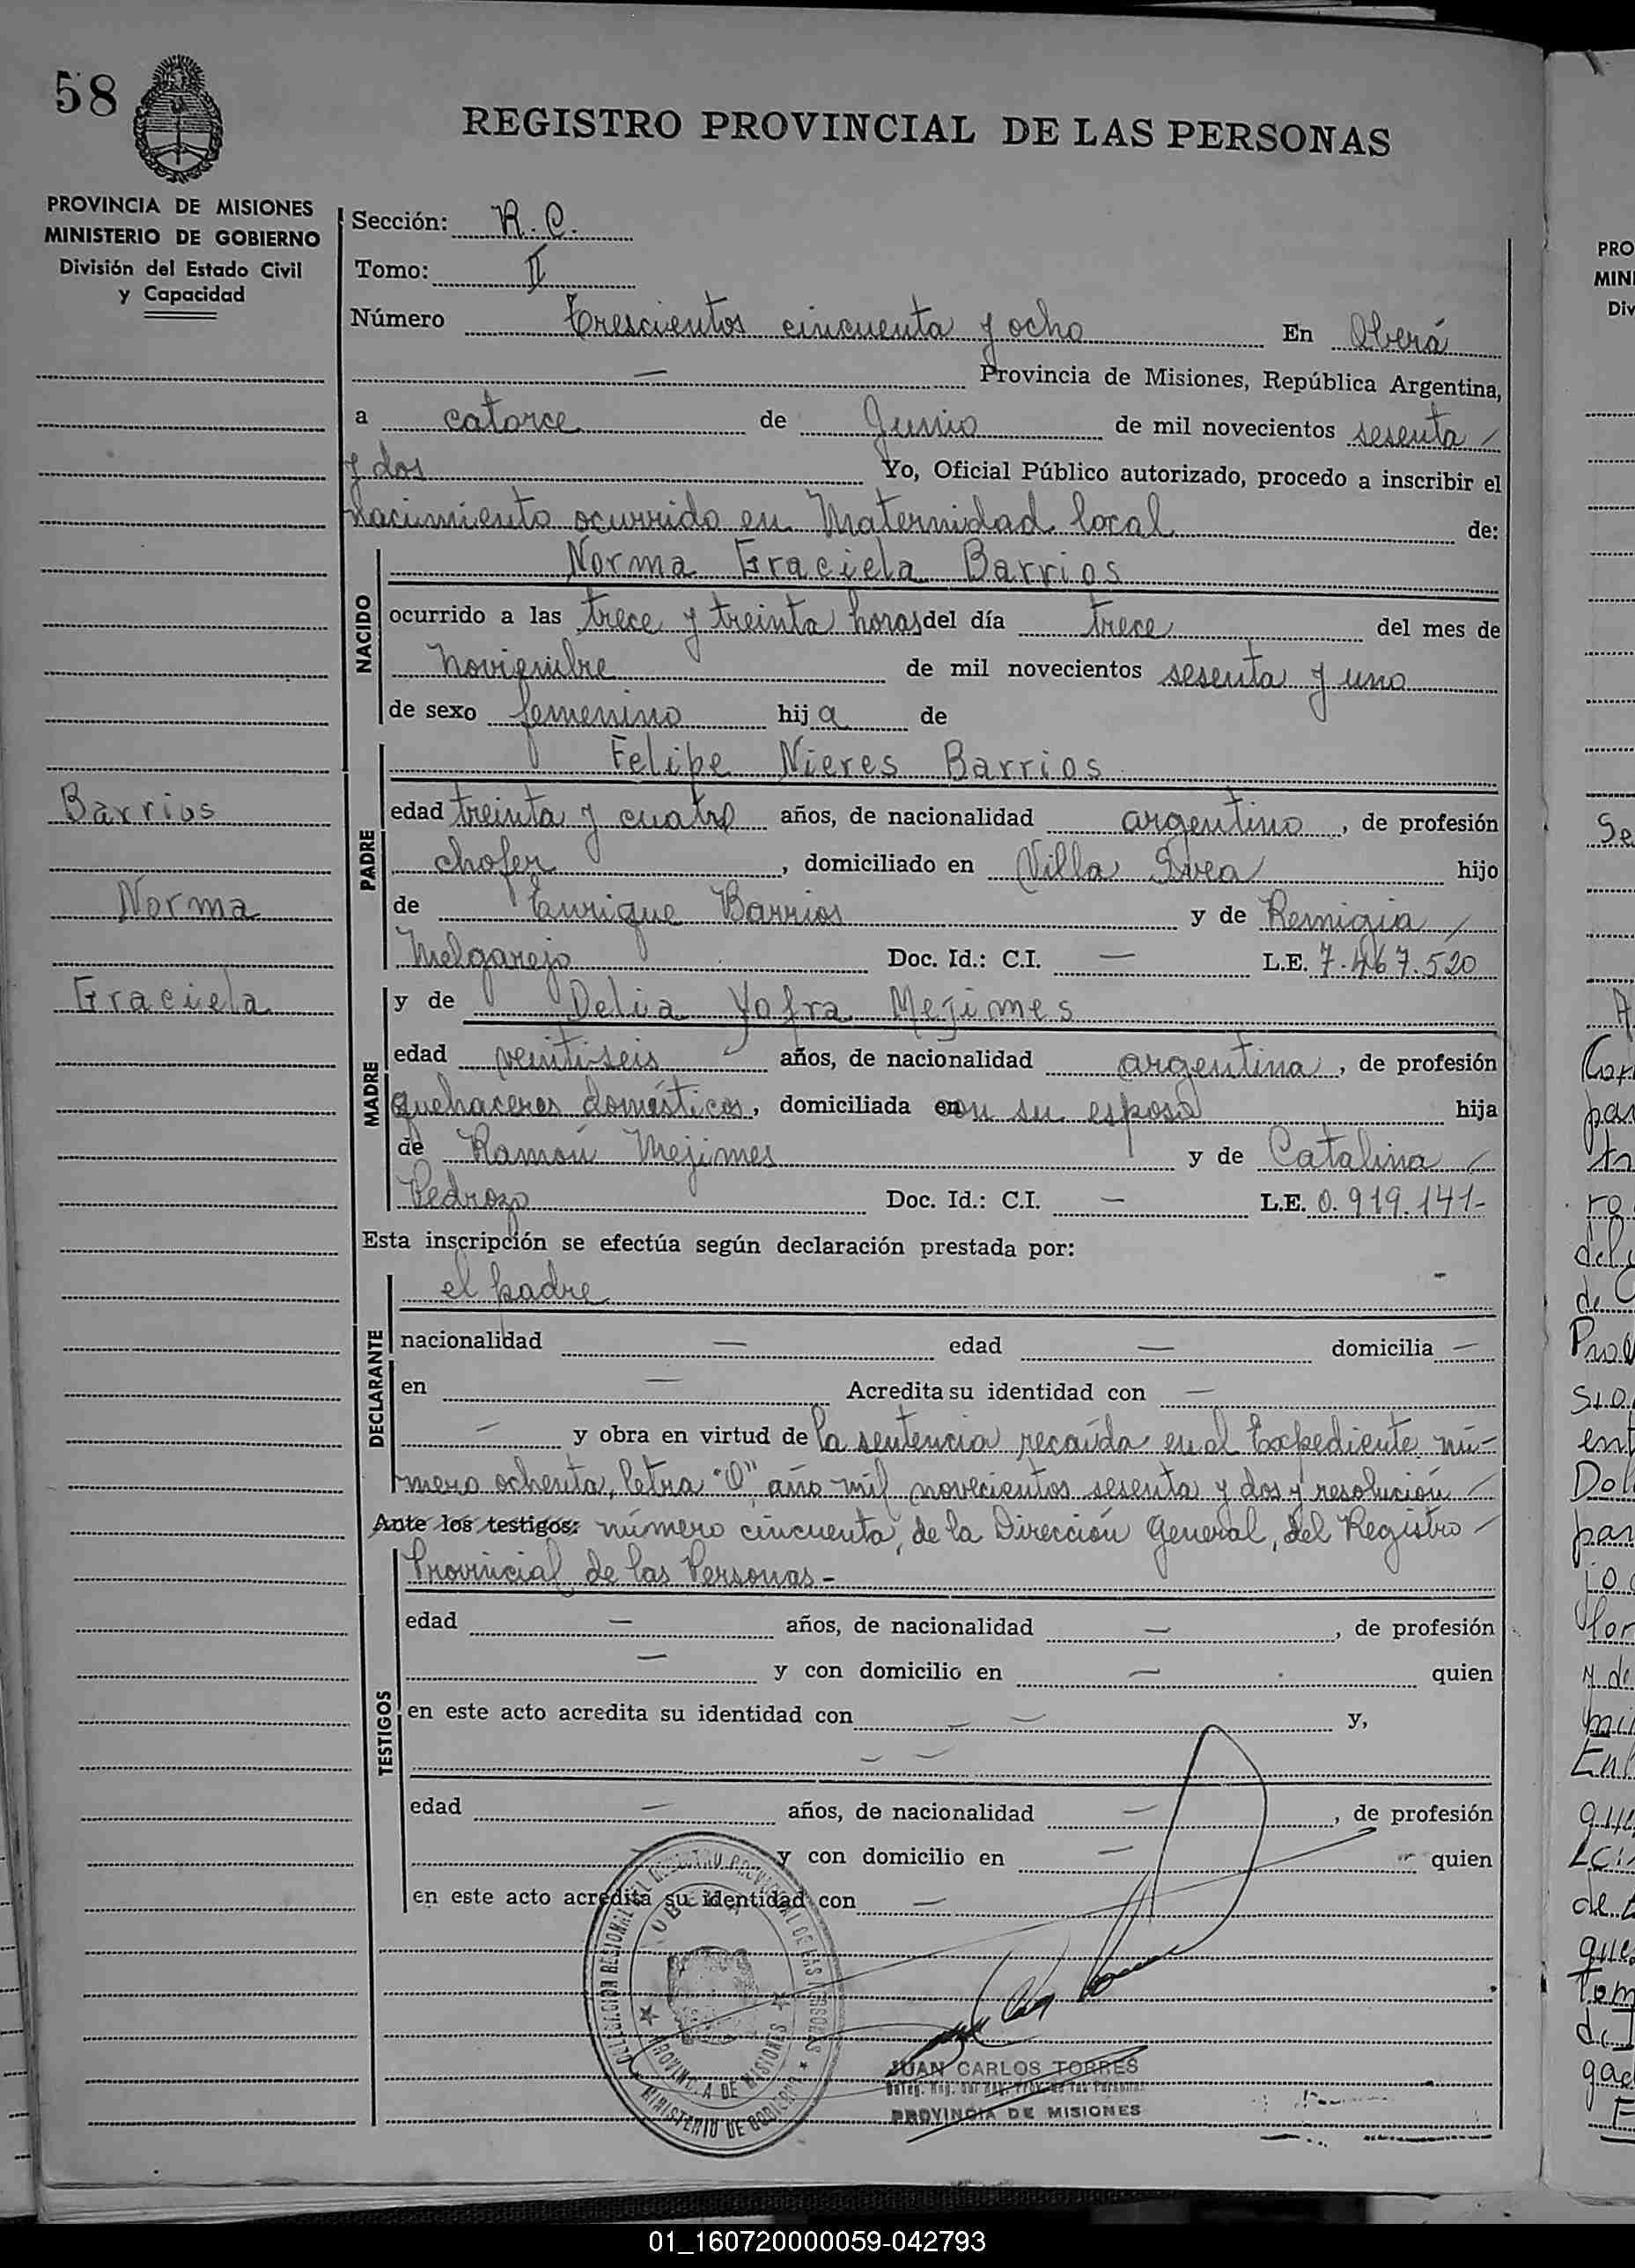 58
REGISTRO PROVINCIAL DE LAS PERSONAS
PROVINCIA DE MISIONES
MINISTERIO DE GOBIERNO
División del Estado Civil
y Capacidad
Sección: R. C.
Tomo: II
Número Trescientos cincuenta y ocho En Oberá
— Provincia de Misiones, República Argentina,
a catorce de Junio de mil novecientos sesenta /
y dos Yo, Oficial Público autorizado, procedo a inscribir el
nacimiento ocurrido en Maternidad local de:
NACIDO
Norma Graciela Barrios
ocurrido a las trece y treinta horas del día trece del mes de
noviembre de mil novecientos sesenta y uno
de sexo femenino hija de
PADRE
Felipe Nieres Barrios
Barrios
edad treinta y cuatro años, de nacionalidad argentino, de profesión
chofer, domiciliado en Villa hijo
Norma
de Enrique Barrios y de Remigia /
Melgarejo Doc. Id.: C.I. — L.E. 7.467.520
Graciela
MADRE
y de Delia Yofra Mejimes
edad veintiseis años, de nacionalidad argentina, de profesión
quehaceres domésticos, domiciliada con su esposo hija
de Ramón Mejimes y de Catalina /
Pedrozo Doc. Id.: C.I. — L.E. 0.919.141-
Esta inscripción se efectúa según declaración prestada por:
DECLARANTE
el padre
nacionalidad — edad — domicilia —
en — Acredita su identidad con —
— y obra en virtud de la sentencia recaída en el Expediente nú-
mero ochenta, letra "O", año mil novecientos sesenta y dos y resolución /
Ante los testigos: número cincuenta, de la Dirección General, del Registro /
Provincial de las Personas -
TESTIGOS
edad — años, de nacionalidad —, de profesión
— y con domicilio en — quien
en este acto acredita su identidad con — — y,
— —
edad — años, de nacionalidad —, de profesión
y con domicilio en — quien
en este acto acredita su identidad con —
DELEGACION REGIONAL DEL REGISTRO PROVINCIAL DE LAS PERSONAS
OBERA
PROVINCIA DE MISIONES
MINISTERIO DE GOBIERNO
JUAN CARLOS TORRES
PROVINCIA DE MISIONES
PRO
MINI
Div
01_160720000059-042793